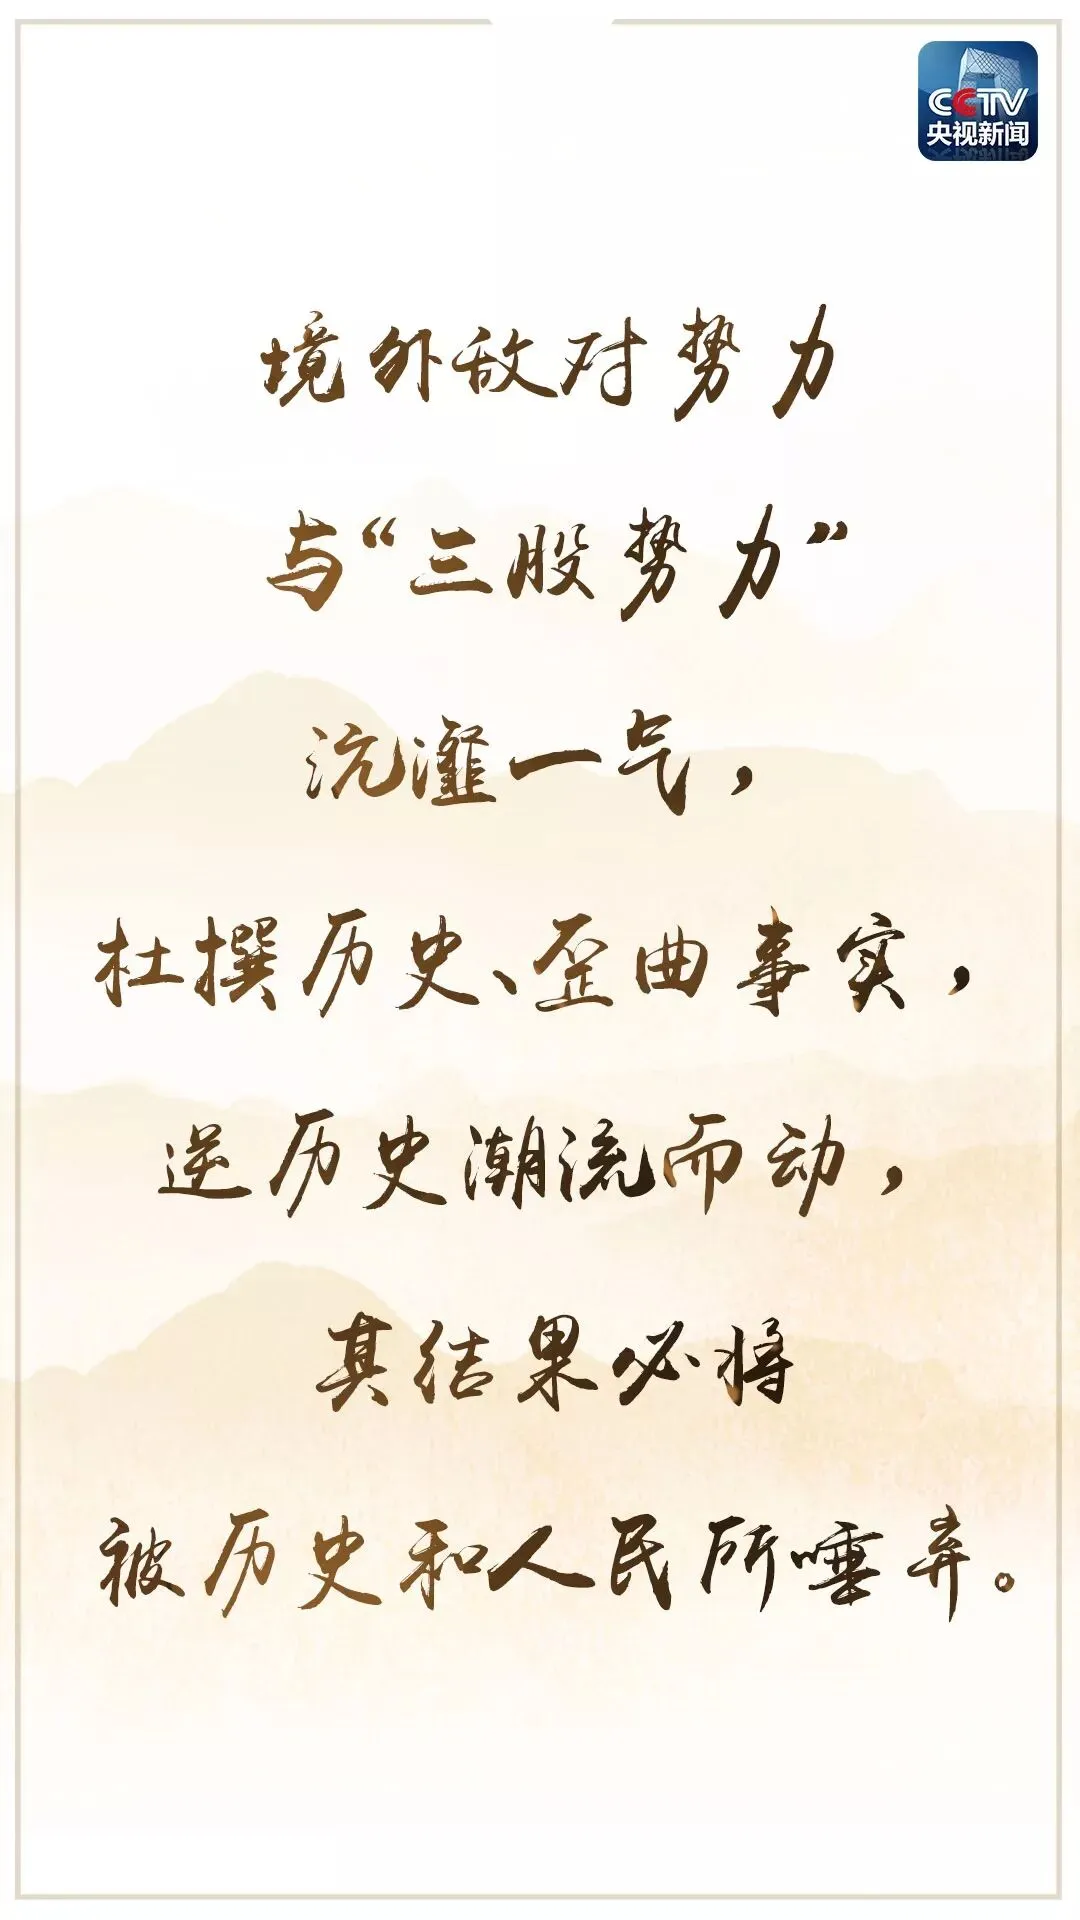 CCTV
央视新闻
境外敌对势力
与“三股势力”
沆瀣一气，
杜撰历史、歪曲事实，
逆历史潮流而动，
其结果必将
被历史和人民所唾弃。